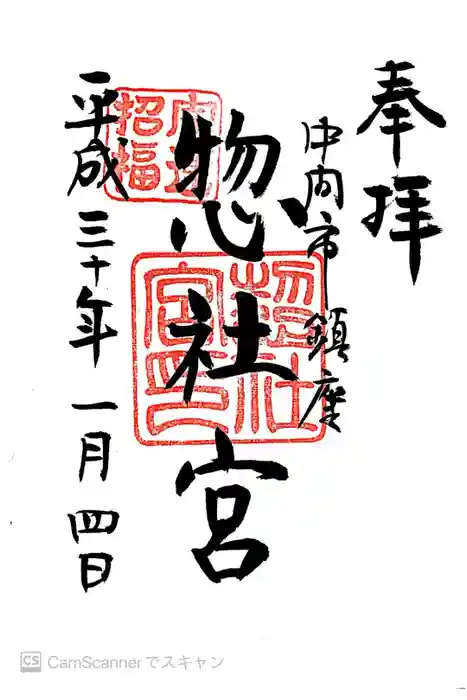 奉拝
中内市 鎮座
惣社宮
平成三十年一月四日
招福
惣社
宮印
CS CamScannerでスキャン